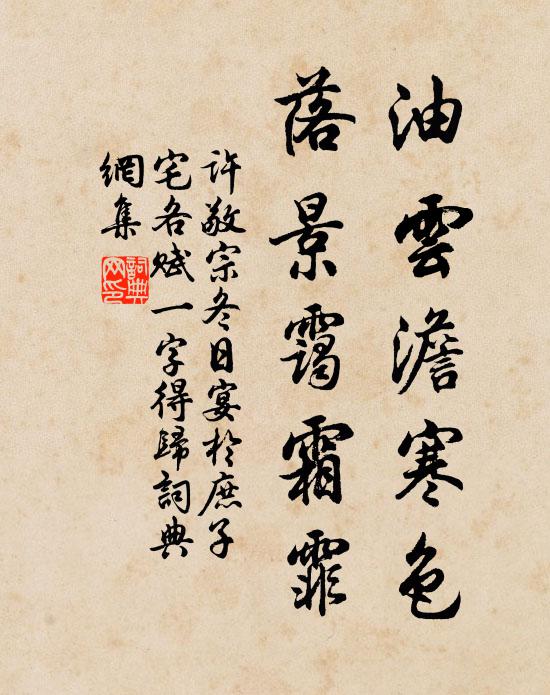 油雲澹寒色
落景靄霜霏
許敬宗冬日宴於庶子
宅各賦一字得歸詞典
網集
詞典網印